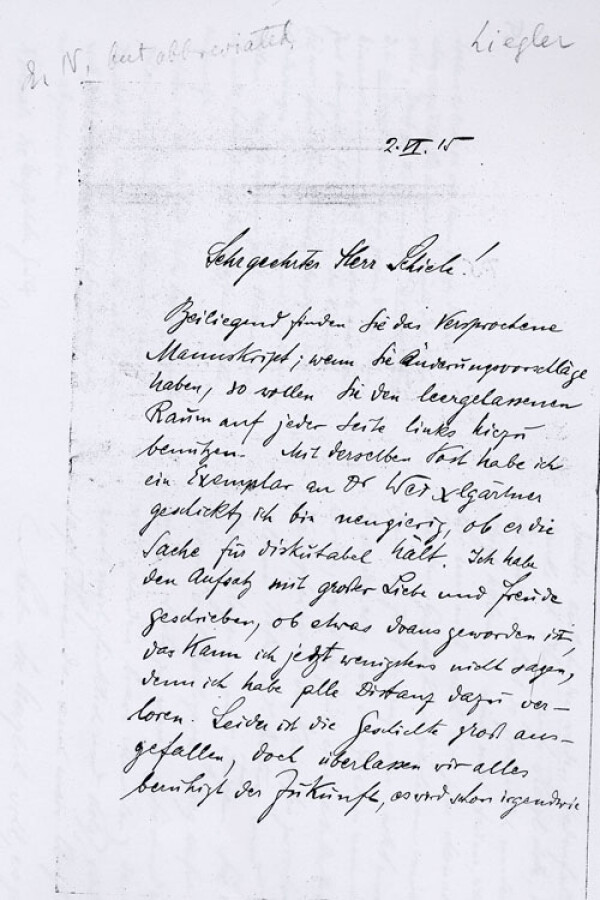 In N. but abbreviated
Liegler
2.VI.15
Sehrgeehrter Herr Schiele!
Beiliegend finden Sie das Versprochene
Manuskript; wenn Sie Änderungsvorschläge
haben, so wollen Sie den leergelassenen
Raum auf jeder Seite links hiezu
benützen. Mit derselben Post habe ich
ein Exemplar an Dr Weixlgärtner
geschickt, ich bin neugierig, ob er die
Sache für diskutabel hält. Ich habe
den Aufsatz mit großer Liebe und Freude
geschrieben, ob etwas draus geworden ist,
das kann ich jetzt wenigstens nicht sagen,
denn ich habe alle Distanz dazu ver-
loren. Leider ist die Geschichte groß aus-
gefallen, doch überlassen wir alles
beruhigt der Zukunft, es wird schon irgendwie